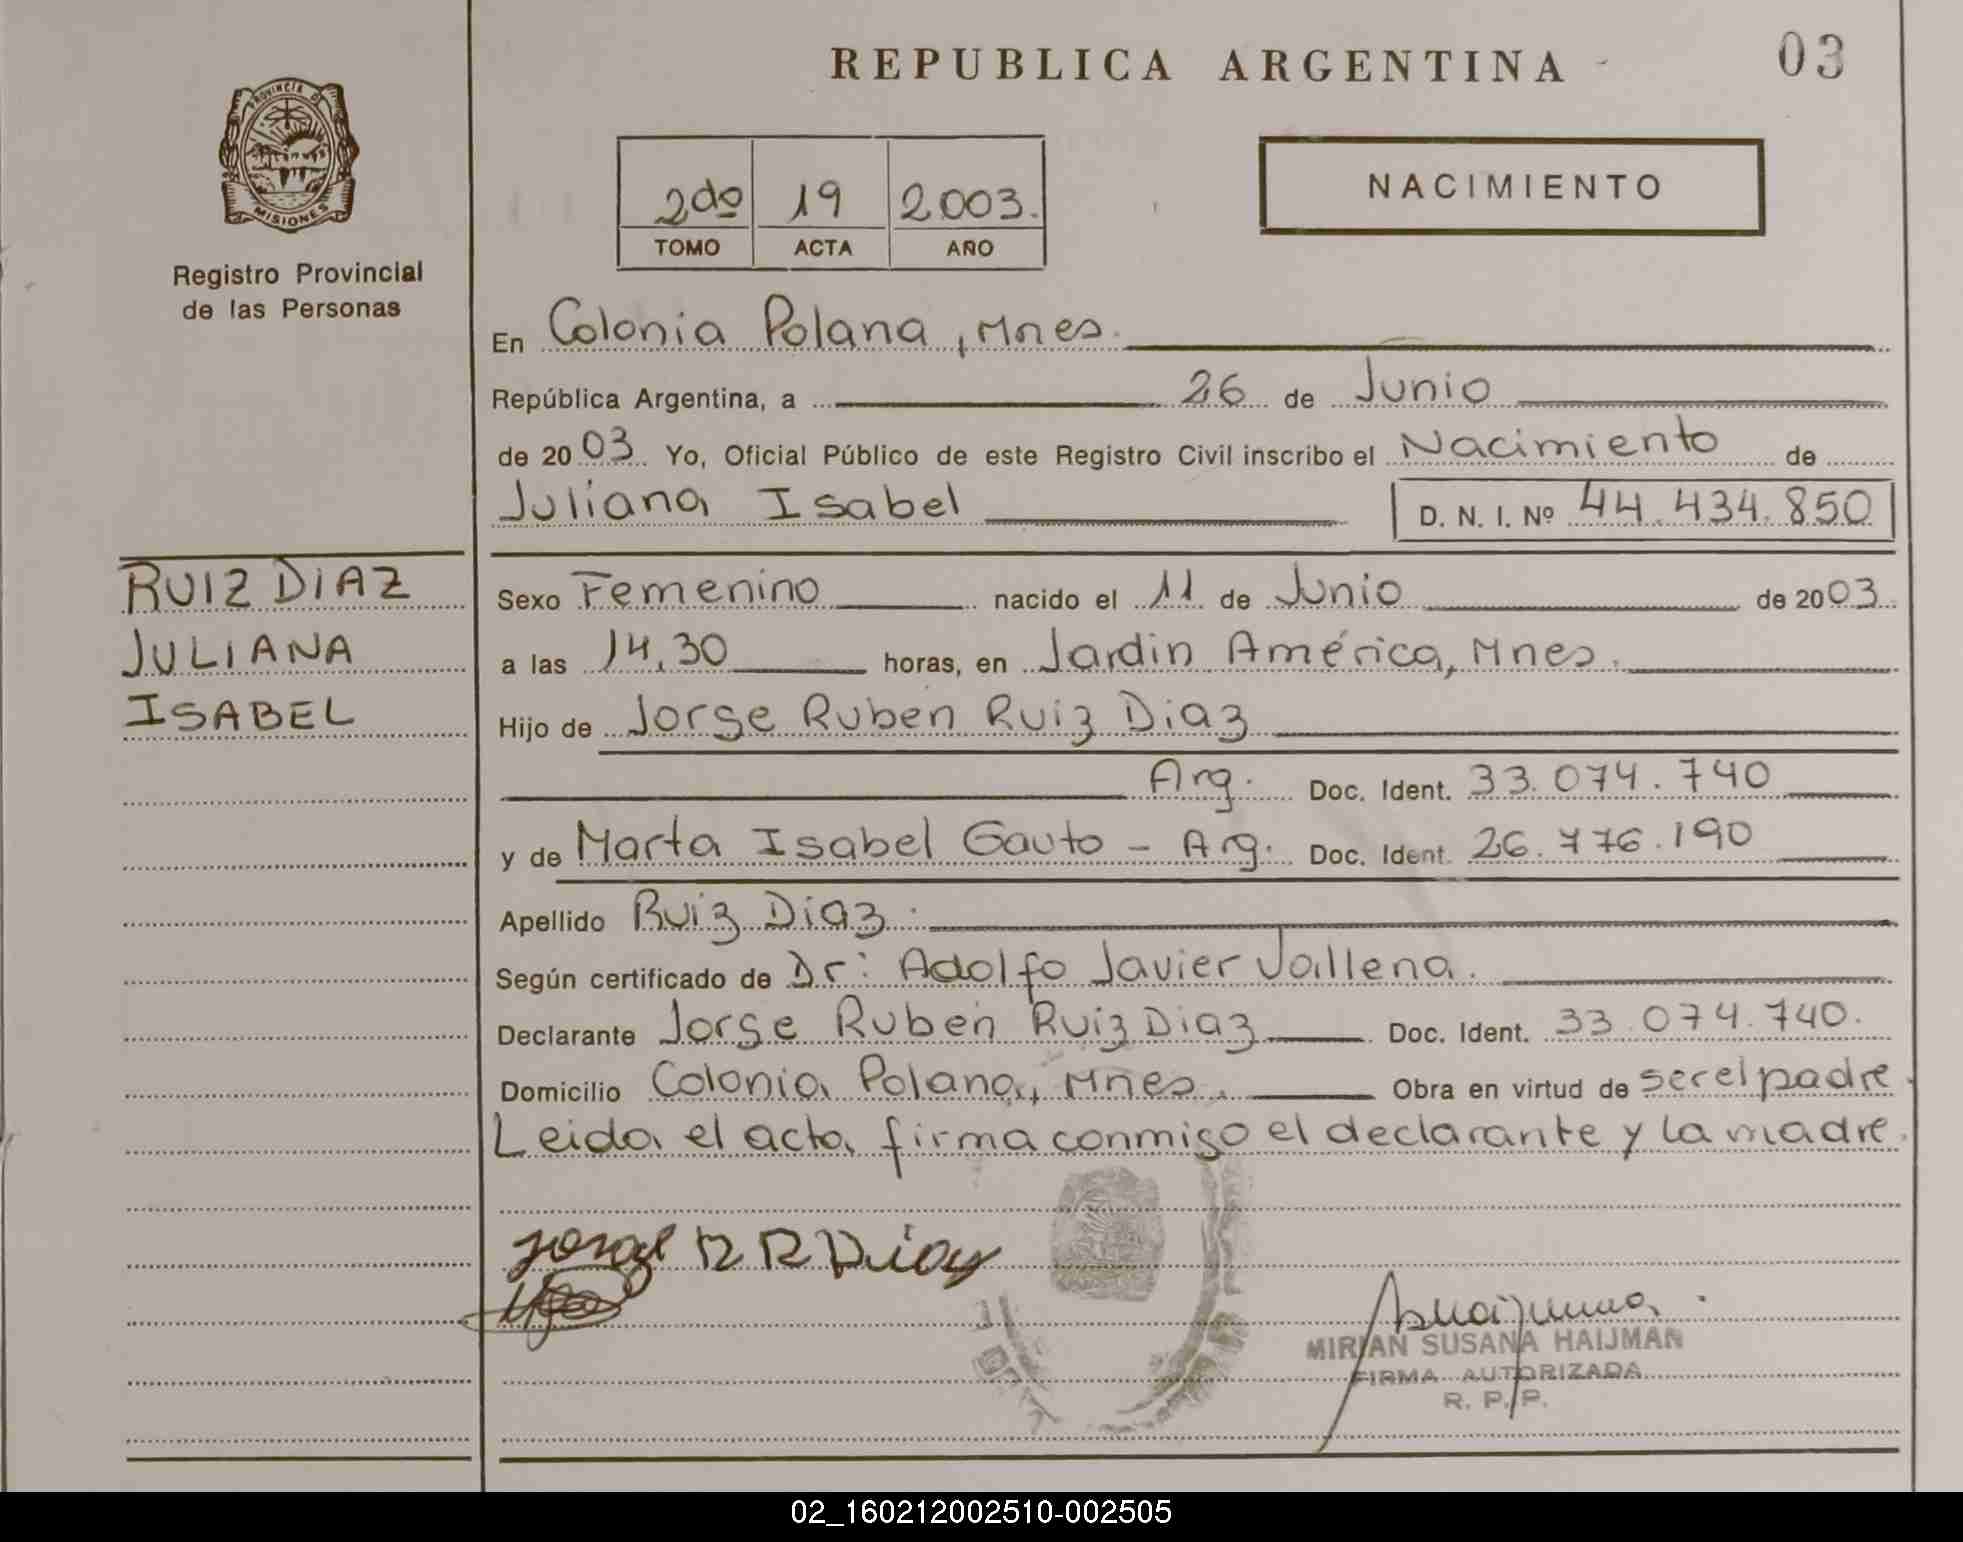 REPUBLICA ARGENTINA
03
PROVINCIA DE
MISIONES
Registro Provincial
de las Personas
2do 19 2003.
TOMO ACTA AÑO
NACIMIENTO
En Colonia Polana, Mnes.
República Argentina, a 26 de Junio
de 2003. Yo, Oficial Público de este Registro Civil inscribo el Nacimiento de
Juliana Isabel D. N. I. Nº 44.434.850
RUIZ DIAZ
JULIANA
ISABEL
Sexo Femenino nacido el 11 de Junio de 2003
a las 14,30 horas, en Jardin América, Mnes.
Hijo de Jorge Ruben Ruiz Diaz
Arg. Doc. Ident. 33.074.740
y de Marta Isabel Gauto - Arg. Doc. Ident. 26.776.190
Apellido Ruiz Diaz.
Según certificado de Dr: Adolfo Javier Vallena.
Declarante Jorge Ruben Ruiz Diaz Doc. Ident. 33.074.740.
Domicilio Colonia Polana, Mnes. Obra en virtud de ser el padre.
Leida el acta firma conmigo el declarante y la madre.
Jorge R R Diaz
MIRIAN SUSANA HAIJMAN
FIRMA AUTORIZADA
R. P. P.
02_160212002510-002505